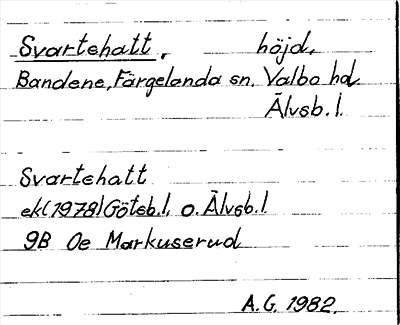 Svartehatt, höjd.
Bandene, Färgelanda sn. Valbo hd.
Älvsb. l.
Svartehatt
ek (1978) Göteb. l. o. Älvsb. l.
9B Oe Markuserud
A.G. 1982.